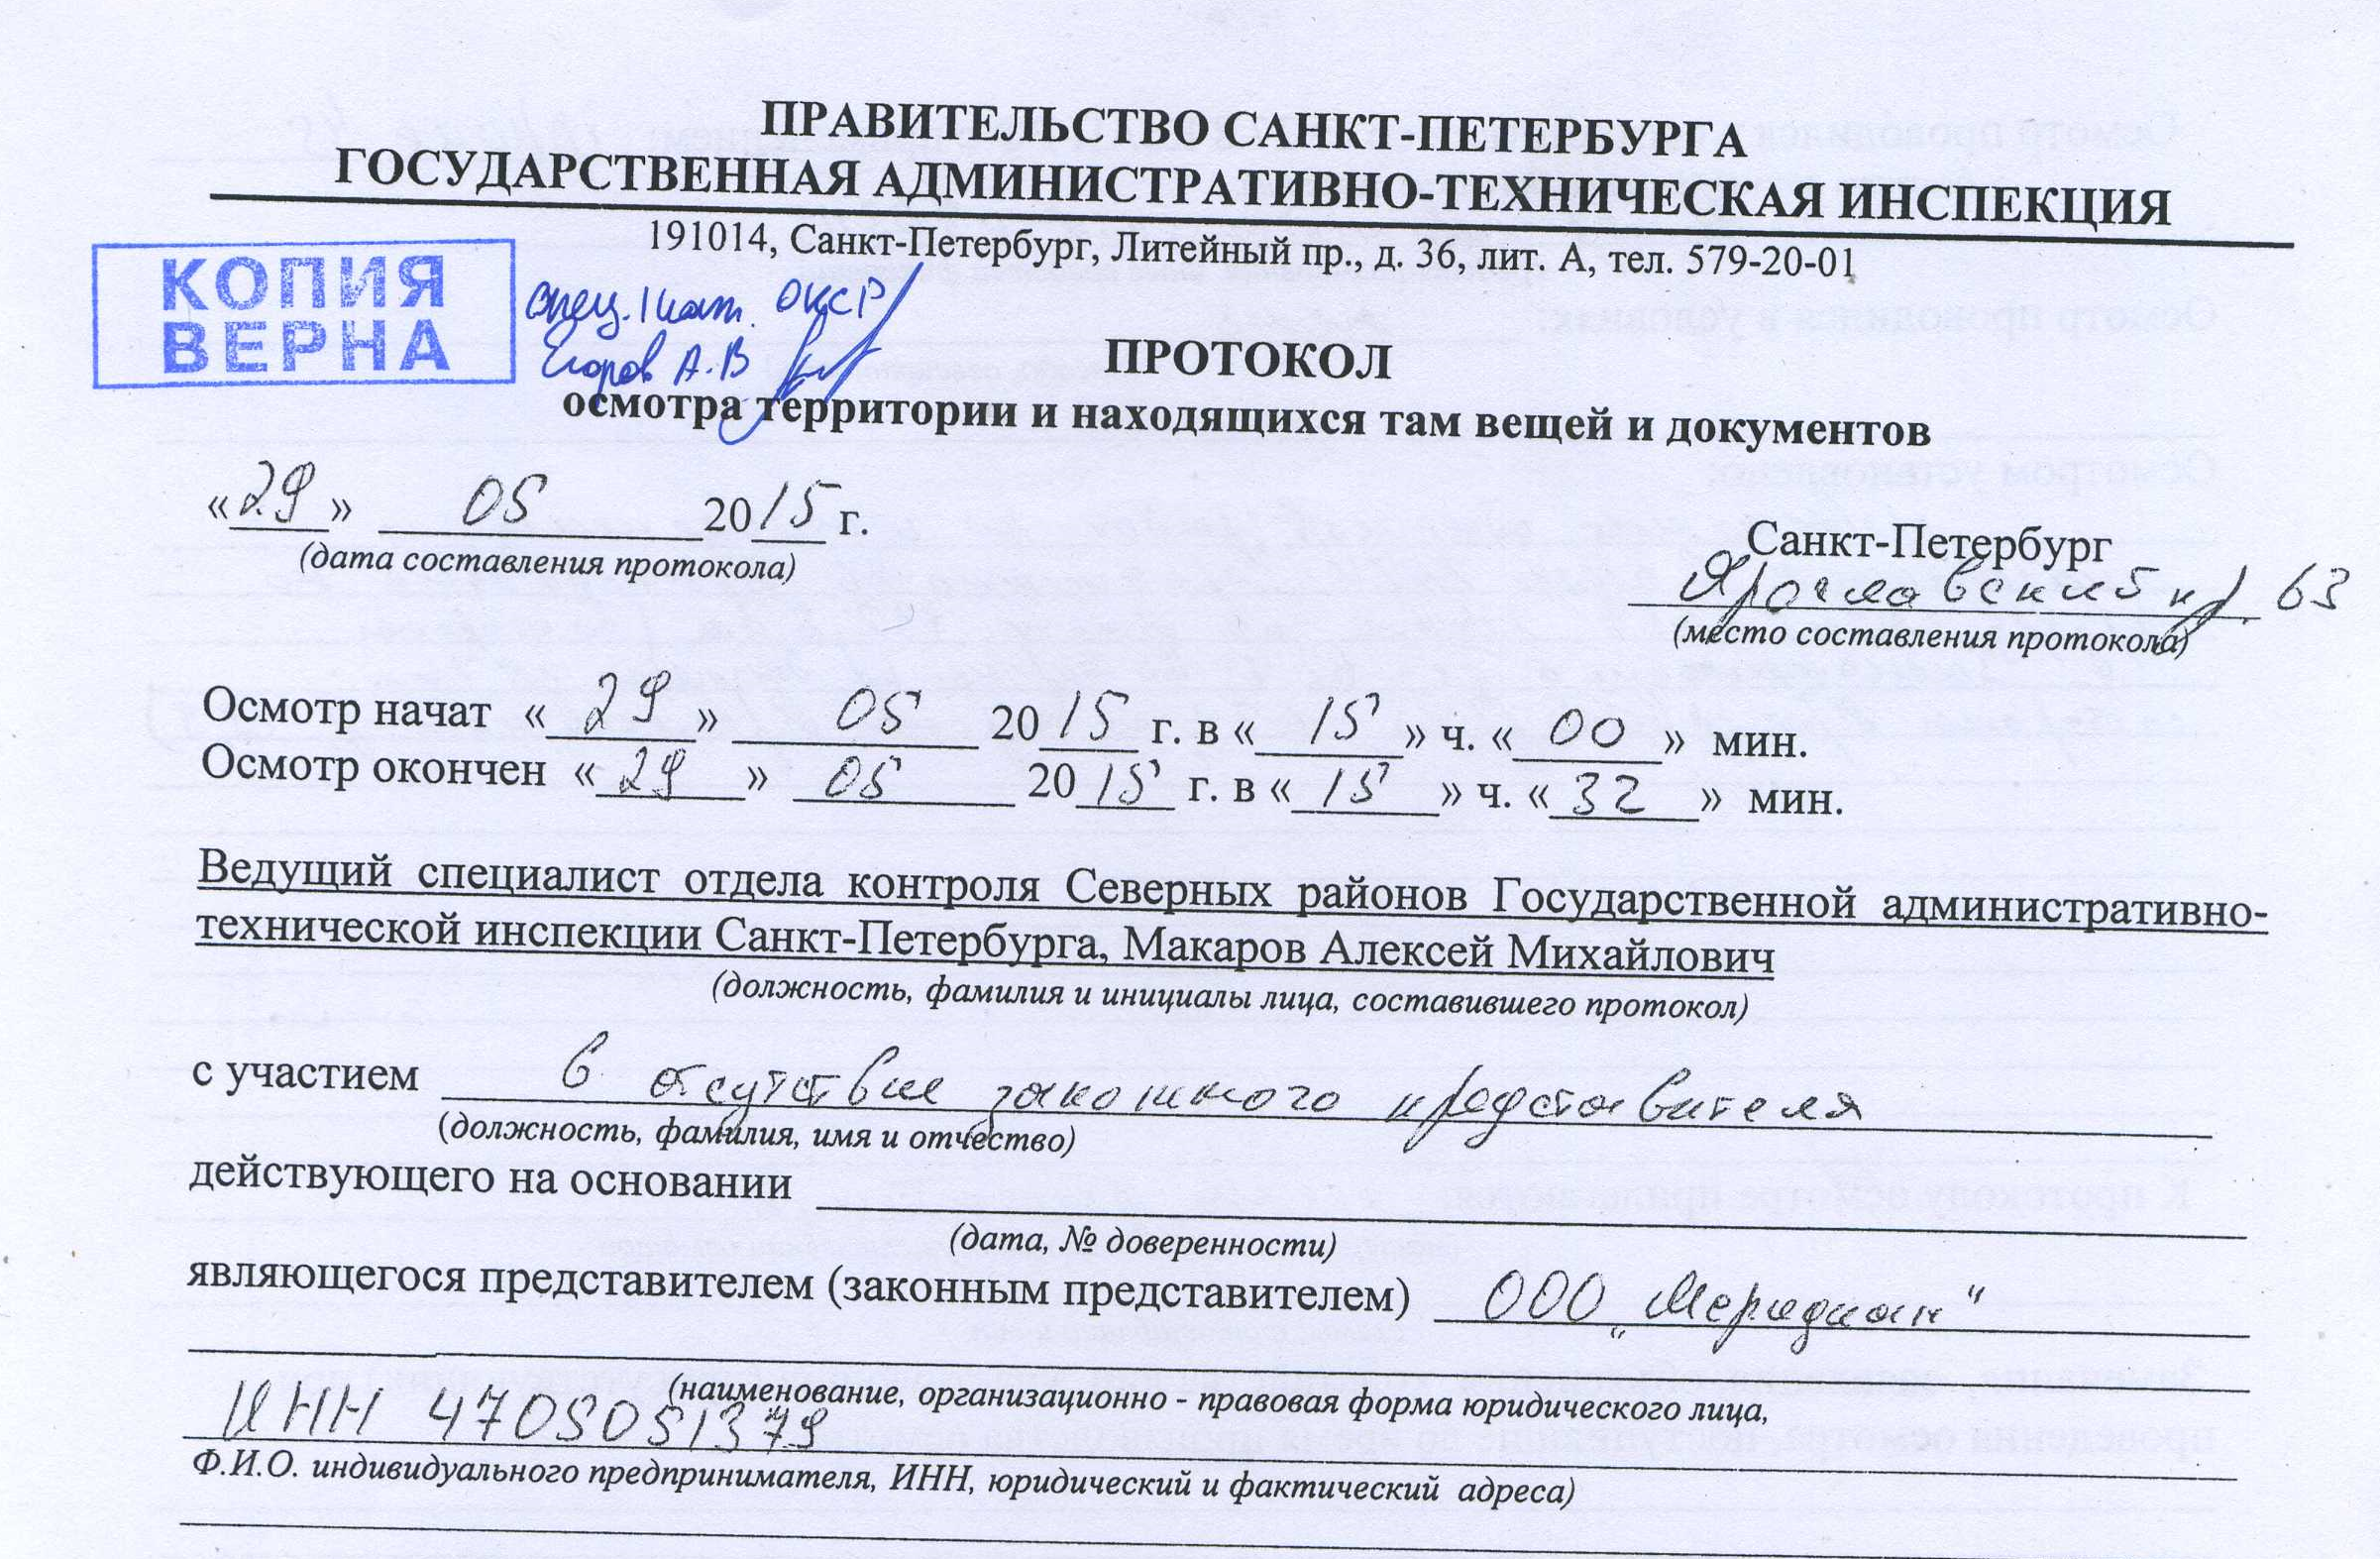 ПРАВИТЕЛЬСТВО САНКТ-ПЕТЕРБУРГА
ГОСУДАРСТВЕННАЯ АДМИНИСТРАТИВНО-ТЕХНИЧЕСКАЯ ИНСПЕКЦИЯ
191014, Санкт-Петербург, Литейный пр., д. 36, лит. А, тел. 579-20-01
КОПИЯ
ВЕРНА
спец. 1 кат. ОКСР
Егоров А.В
ПРОТОКОЛ
осмотра территории и находящихся там вещей и документов
«29» 05 2015 г.
(дата составления протокола)
Санкт-Петербург
Ярославский пр. 63
(место составления протокола)
Осмотр начат «29» 05 2015 г. в «15» ч. «00» мин.
Осмотр окончен «29» 05 2015 г. в «15» ч. «32» мин.
Ведущий специалист отдела контроля Северных районов Государственной административно-
технической инспекции Санкт-Петербурга, Макаров Алексей Михайлович
(должность, фамилия и инициалы лица, составившего протокол)
с участием в отсутствие законного представителя
(должность, фамилия, имя и отчество)
действующего на основании
(дата, № доверенности)
являющегося представителем (законным представителем) ООО „Меридиан"
(наименование, организационно - правовая форма юридического лица,
ИНН 4705051379
Ф.И.О. индивидуального предпринимателя, ИНН, юридический и фактический адреса)